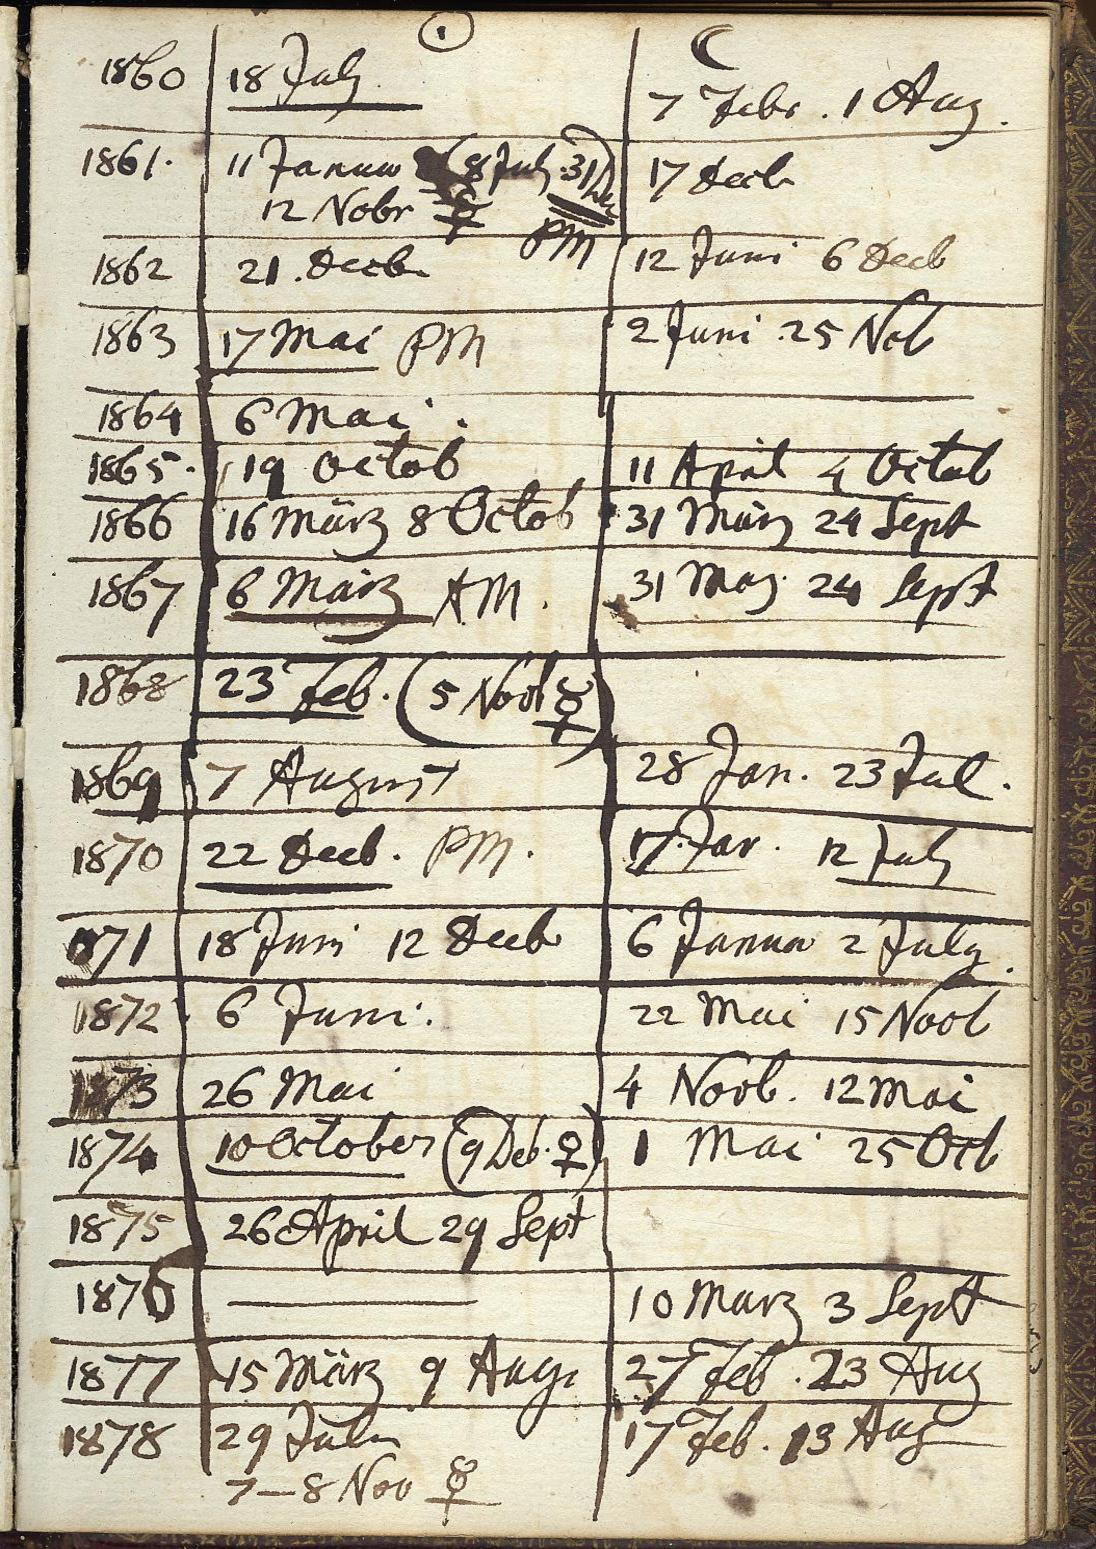 ☉ ☾
1860 18 July 7 Febr. 1 Aug.
1861. 11 Janua (8 July. 31 Dec) 17 Decb
12 Nobr ☿ PM
1862 21. Decb 12 Juni 6 Decb
1863 17 Mai PM 2 Juni. 25 Nob
1864 6 Mai.
1865. 19 Octob 11 April 4 Octob
1866 16 März 8 Octob 31 März 24 Sept
1867 6 März AM. 31 Maz. 24 Sept
1868 23 Feb. (5 Novb ☿)
1869 7 August 28 Jan. 23 Jul.
1870 22 Decb. PM. 17. Jar. 12 July
1871 18 Juni 12 Decb 6 Janua 2 July.
1872 6 Juni. 22 Mai 15 Novb
1873 26 Mai 4 Novb. 12 Mai
1874 10 October (9 Deb. ♀) 1 Mai 25 Octb
1875 26 April 29 Sept
1876 — 10 Marz 3 Sept
1877 15 März 9 Aug. 27 Feb. 23 Aug
1878 29 Jul 17 Feb. 13 Aug
7–8 Nov ☿